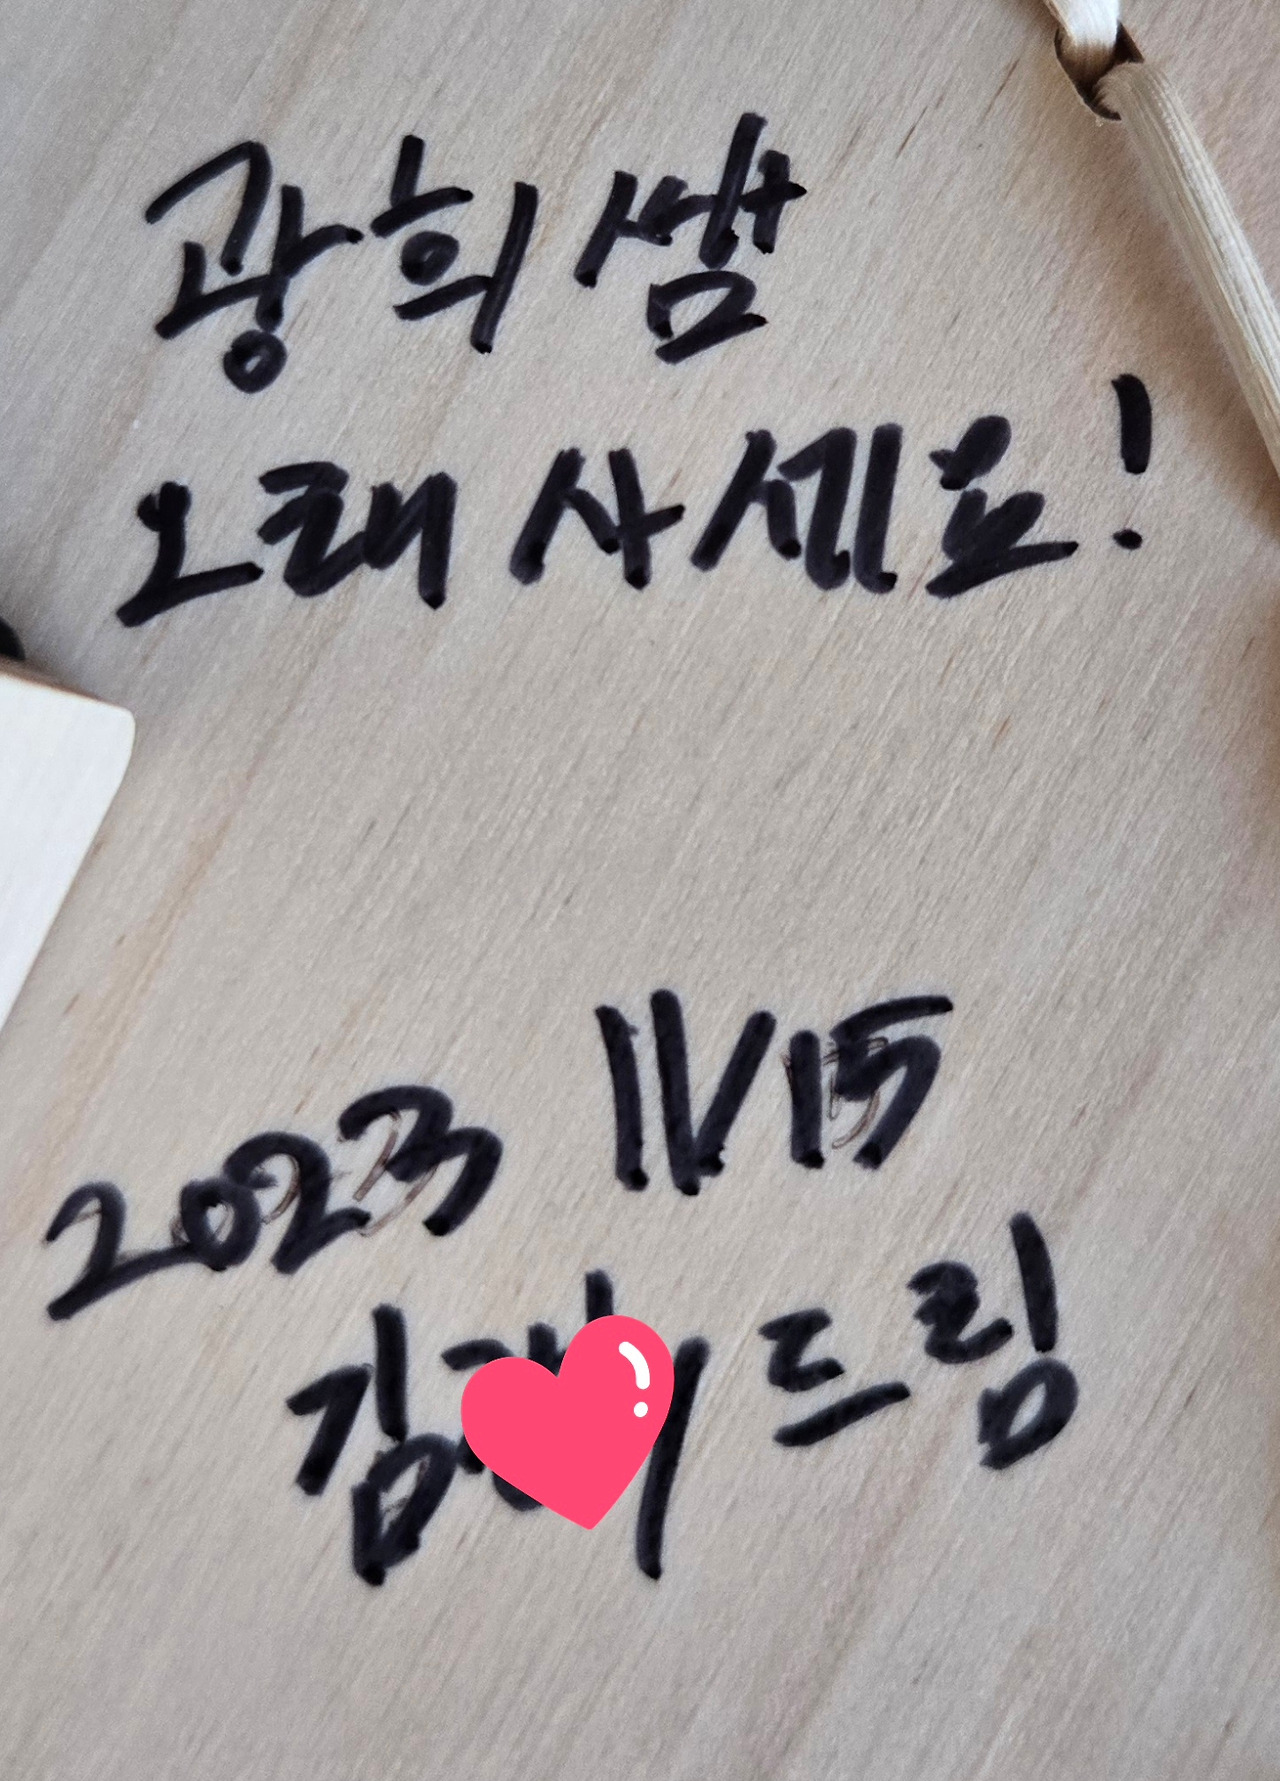 광희쌤
오래 사세요!
2023 11/15
드림